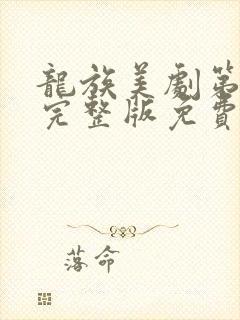 龍族美劇第
完整版免費
落命